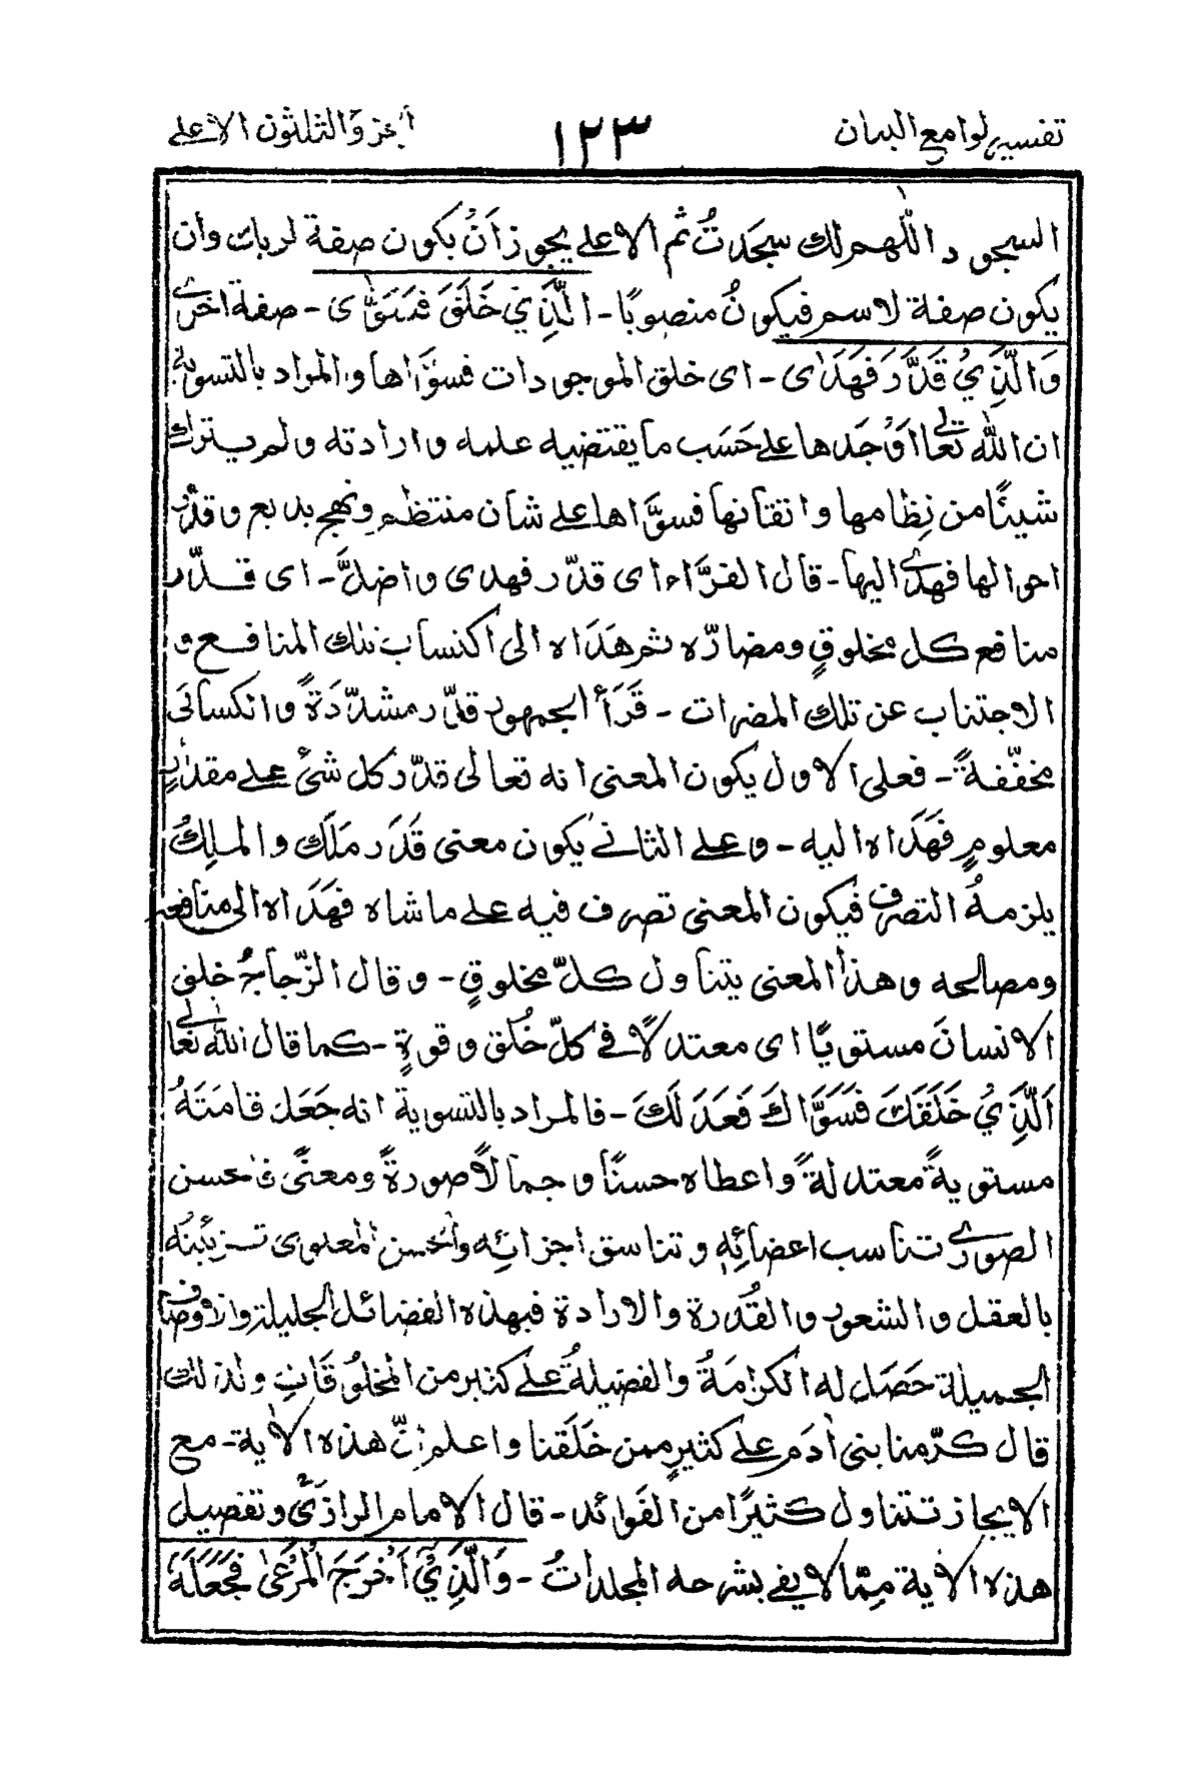 تفسير لوامع البيان
١٢٣
الجزء الثلثون الاعلى
السجود اللّٰهم لك سجدتُ ثم الاعلى يجوز اَنْ يكون صفة لربك وان
يكون صفة لاسم فيكونُ منصوبًا - الَّذِيْ خَلَقَ فَسَوّٰى - صفة اخرى
وَالَّذِيْ قَدَّرَ فَهَدٰى - اى خلق الموجودات فسوّاها والمراد بالتسوية
ان اللّٰه تعالى اَوْجَدها على حَسَب ما يقتضيه علمه وارادته ولم يترك
شيئًا من نِظامها واتقانها فسوَّاها على شان منتظمٍ ونهج بديع وقدّر
احوالها فهدى اليها - قال الفرَّاء اى قدّر فهدى واضلَّ - اى قدّر
منافع كل مخلوقٍ ومضارّه ثم هَدَاه الى اكتساب تلك المنافع و
الاجتناب عن تلك المضرات - قَرَأ الجمهور قدّر مشدّدَةً والكسائى
مخفّفةً - فعلى الاول يكون المعنى انه تعالى قدّر كل شئ على مقدارٍ
معلومٍ فَهَدَاه اليه - وعلى الثانى يكون معنى قَدَر مَلَكَ والملِكُ
يلزمهُ التصرف فيكون المعنى تصرف فيه على ما شاه فهَدَاه الى منافعه
ومصالحه وهذا المعنى يتناول كلّ مخلوقٍ - وقال الزّجاجُ خلق
الانسانَ مستويًا اى معتدلًا فى كلّ خُلق وقوةٍ - كما قال اللّٰه تعالى
اَلَّذِيْ خَلَقَكَ فَسَوَّاكَ فَعَدَلَكَ - فالمراد بالتسوية انه جَعَلَ قامَتَهُ
مستويةً معتدلةً واعطاه حسنًا وجمالًا صورةً ومعنًى فالحسن
الصورى تناسب اعضائِهٖ وتناسق اجزائِه والحسن المعنوى تزيّنه
بالعقل والشعور والقُدرة والارادة فبهذه الفضائل الجليلة والاوصاف
الجميلة حَصَل له الكرامَةُ والفضيلةُ على كثير من المخلوُقَاتِ ولذلك
قال كرّمنا بنى اٰدَم على كثيرٍ ممن خَلَقنا واعلم انّ هذه الاٰية - مع
الايجاز تتناول كثيرًا من الفَوائد - قال الامام الرازىؒ وتفصيل
هذه الاٰية مِمّا لايفى بشرحه المجلداتُ - وَالَّذِيْٓ اَخْرَجَ الْمَرْعٰى فَجَعَلَهٗ